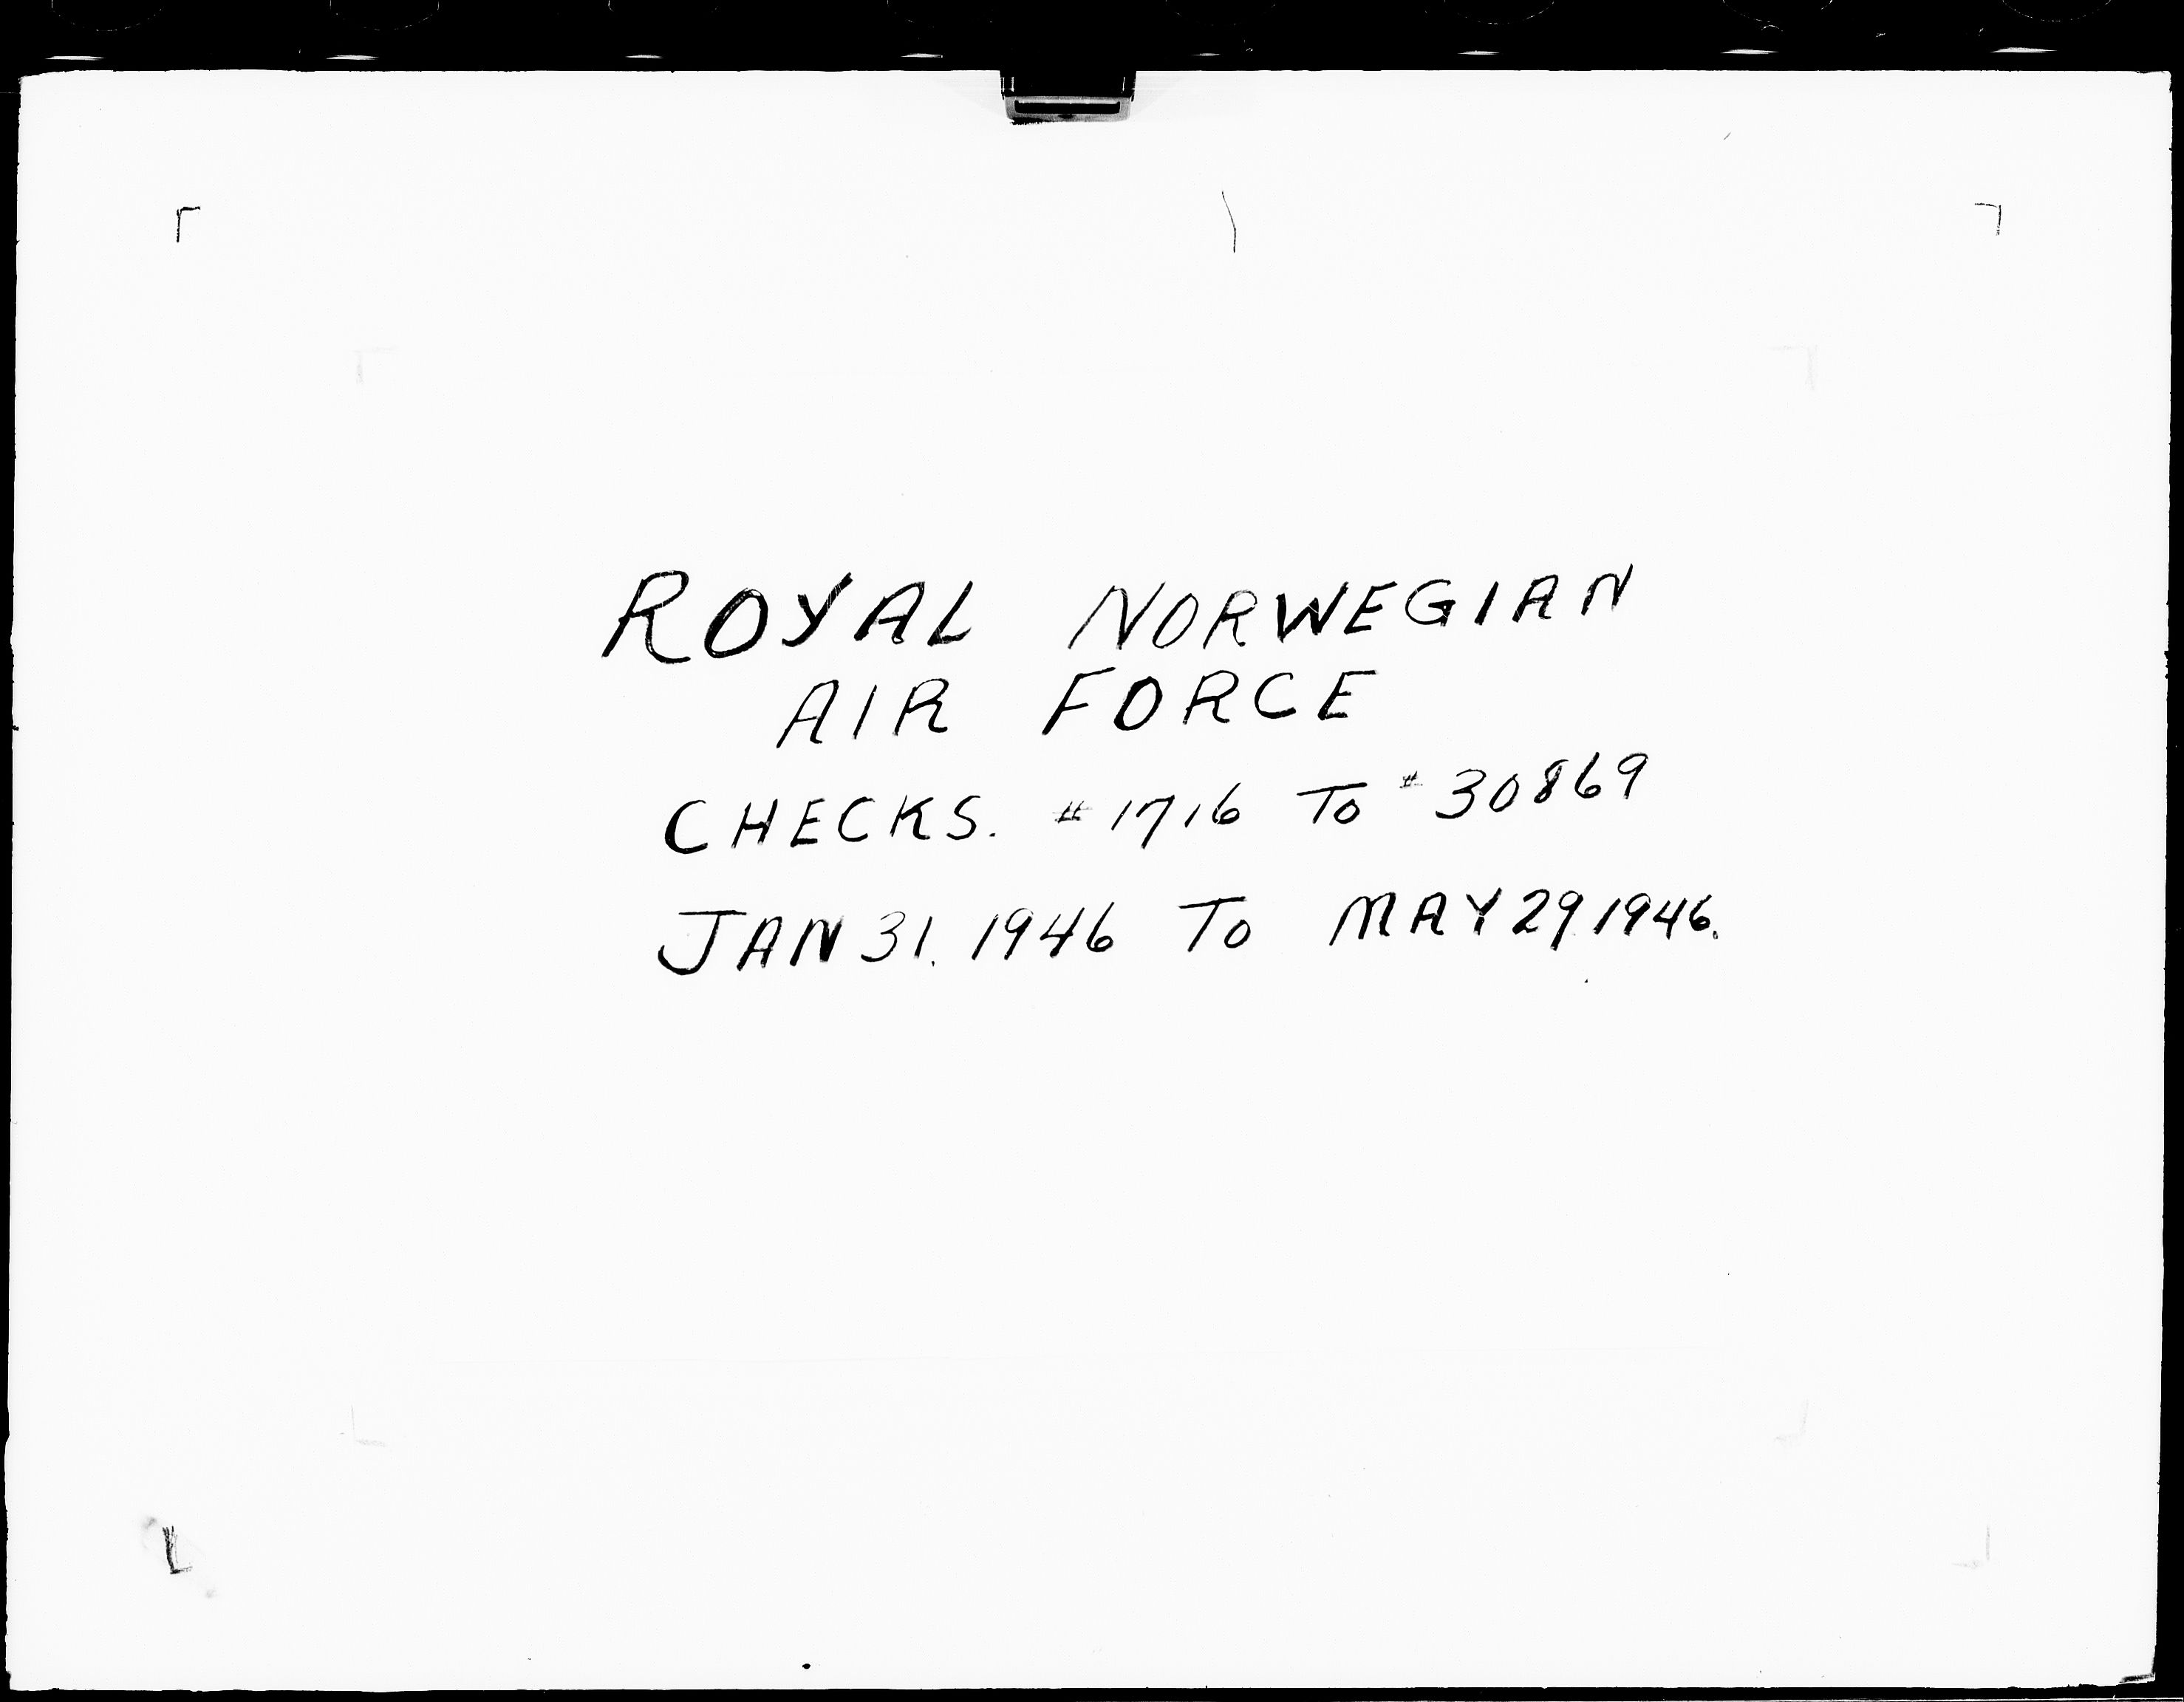 ROYAL NORWEGIAN
AIR FORCE
CHECKS. #1716 To #30869
JAN 31. 1946 To MAY 29 1946.